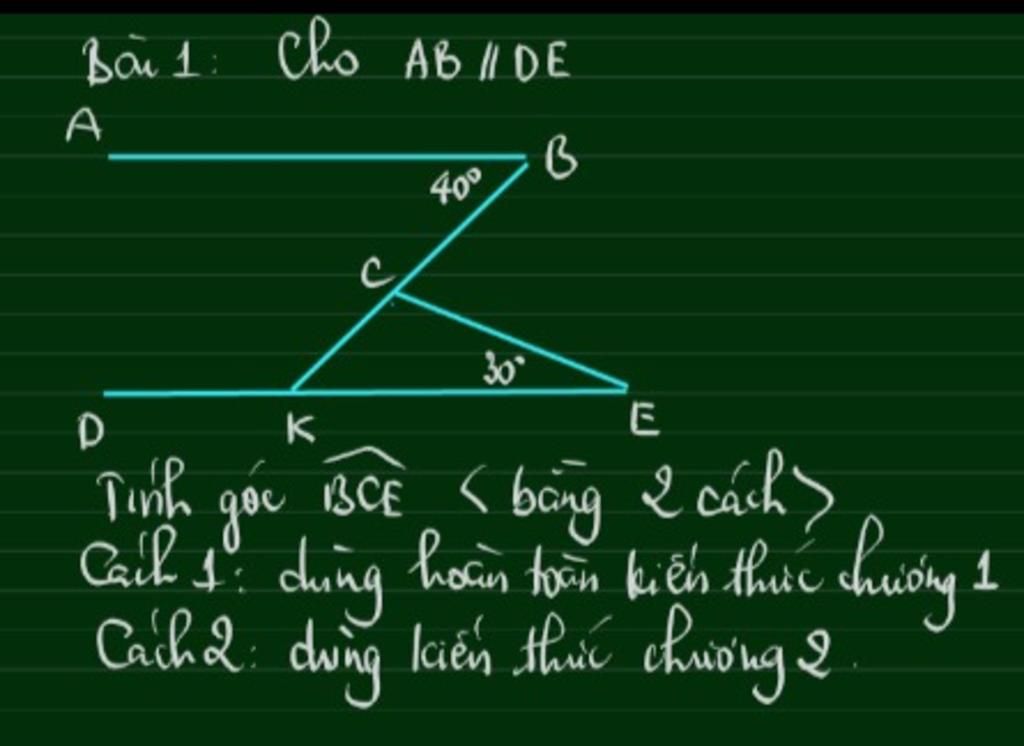 Bài 1: Cho AB // DE
A
B
40°
C
30°
D K E
Tính góc BCE < bằng 2 cách >
Cách 1: dùng hoàn toàn kiến thức chương 1
Cách 2: dùng kiến thức chương 2.